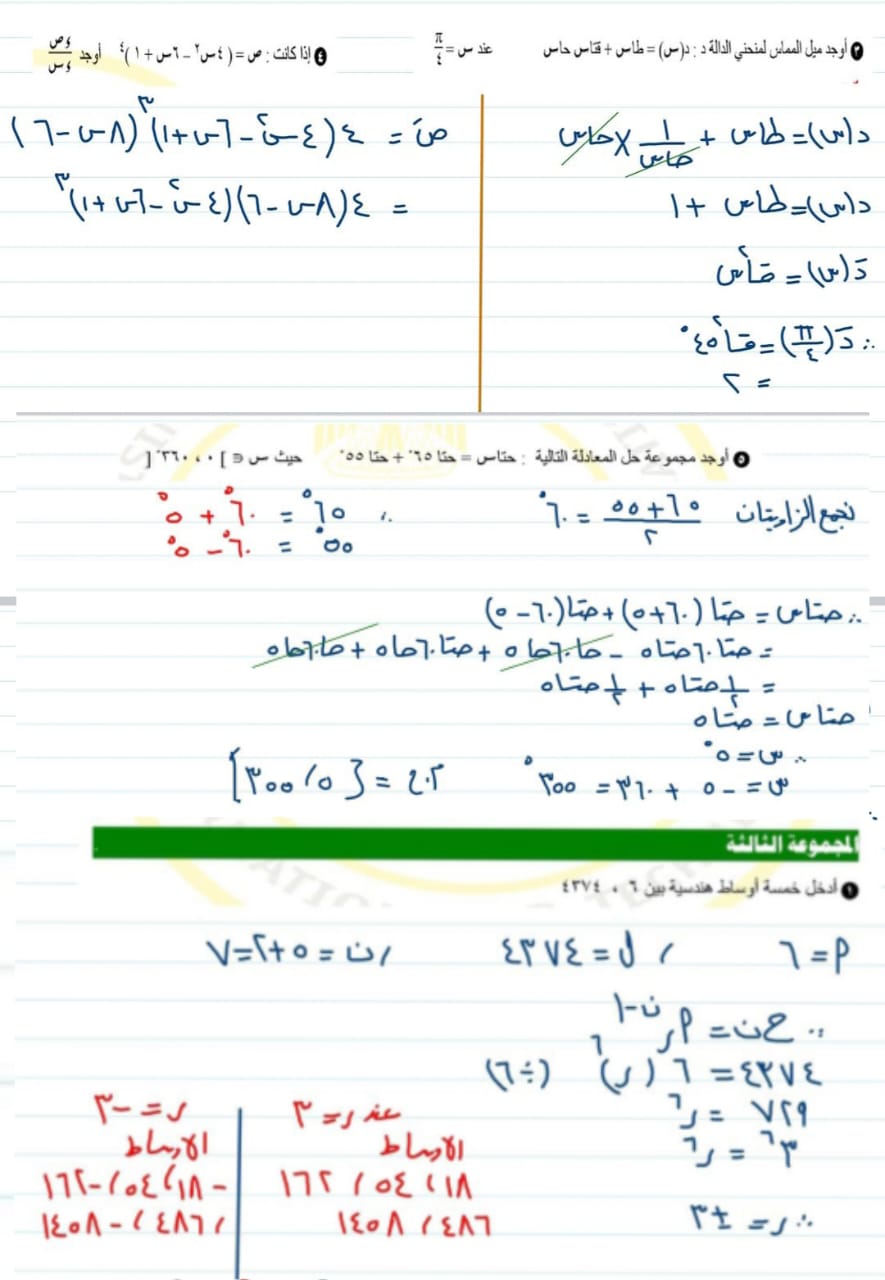 ٣ أوجد ميل المماس لمنحني الدالة د : د(س) = طاس + قتاس حاس عند س = π/٤
د(س) = طاس + ١/حاس × حاس
د(س) = طاس + ١
دَ(س) = قا٢س
∴ دَ(π/٤) = قا٢ ٤٥°
= ٢
٤ إذا كانت : ص = (٤س٢ – ٦س + ١)٤ أوجد ءص/ءس
صَ = ٤(٤س٢ – ٦س + ١)٣ (٨س – ٦)
= ٤(٨س – ٦)(٤س٢ – ٦س + ١)٣
٥ أوجد مجموعة حل المعادلة التالية : حتاس = حتا ٦٥° + حتا ٥٥° حيث س ∈ ]٠ ، ٣٦٠°[
نجمع الزاويتان ٦٥+٥٥/٢ = ٦٠°
∴ ٦٥° = ٦٠° + ٥°
٥٥° = ٦٠° – ٥°
∴ حتاس = حتا(٦٠+٥) + حتا(٦٠–٥)
= حتا٦٠حتا٥ – حا٦٠حا٥ + حتا٦٠حا٥ + حا٦٠حا٥
= ١/٢ حتا٥ + ١/٢ حتا٥
حتاس = حتا٥
∴ س = ٥°
س = –٥ + ٣٦٠ = ٣٥٥° م.ح = {٥ ، ٣٥٥}
المجموعة الثالثة
١ أدخل خمسة أوساط هندسية بين ٦ ، ٤٣٧٤
م = ٦ ، ل = ٤٣٧٤ ، ن = ٥+٢ = ٧
∴ ح ن = م ر ن-١
٤٣٧٤ = ٦ (ر)٦ (÷٦)
٧٢٩ = ر٦
٣٦ = ر٦
∴ ر = ±٣
عند ر = ٣
الاوساط
١٨ ، ٥٤ ، ١٦٢
٤٨٦ ، ١٤٥٨
ر = –٣
الاوساط
–١٨ ، ٥٤ ، –١٦٢
، ٤٨٦ ، –١٤٥٨